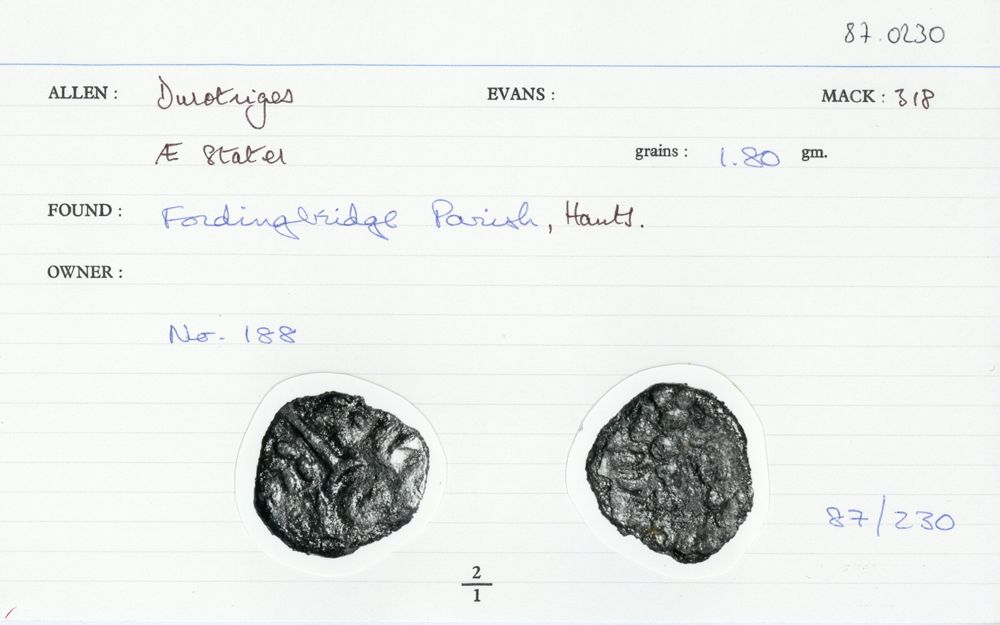 87.0230
ALLEN : Durotriges EVANS : MACK : 318
Æ Stater grains : 1.80 gm.
FOUND : Fordingbridge Parish, Hants.
OWNER :
No. 188
87/230
2
1